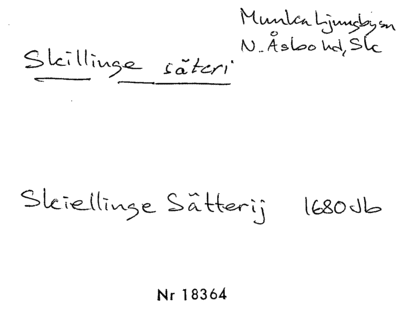 Munka Ljungby sn
N. Åsbo hd, Sk
Skillinge säteri
Skiellinge Sätterij 1680 Jb
Nr 18364